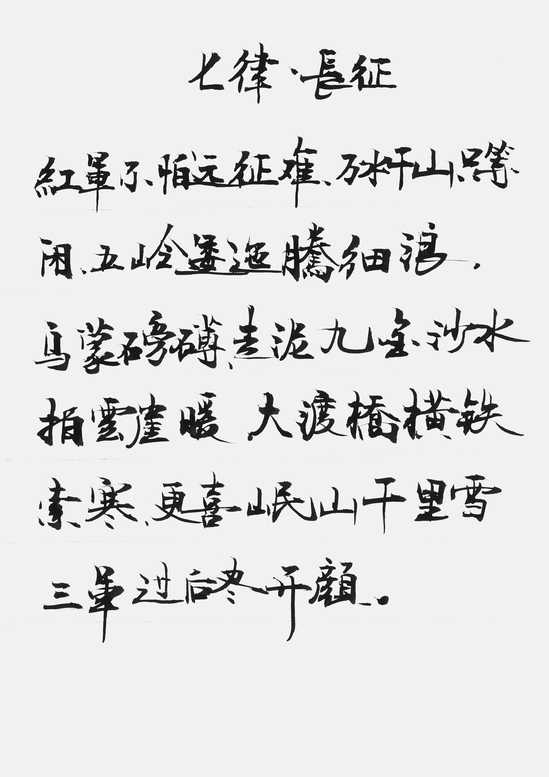 七律·長征
紅軍不怕远征难、万水千山只等
闲、五岭逶迤騰细浪，
乌蒙磅礴走泥丸金沙水
拍雲崖暖 大渡橋横铁
索寒、更喜岷山千里雪
三军过后尽开顔。